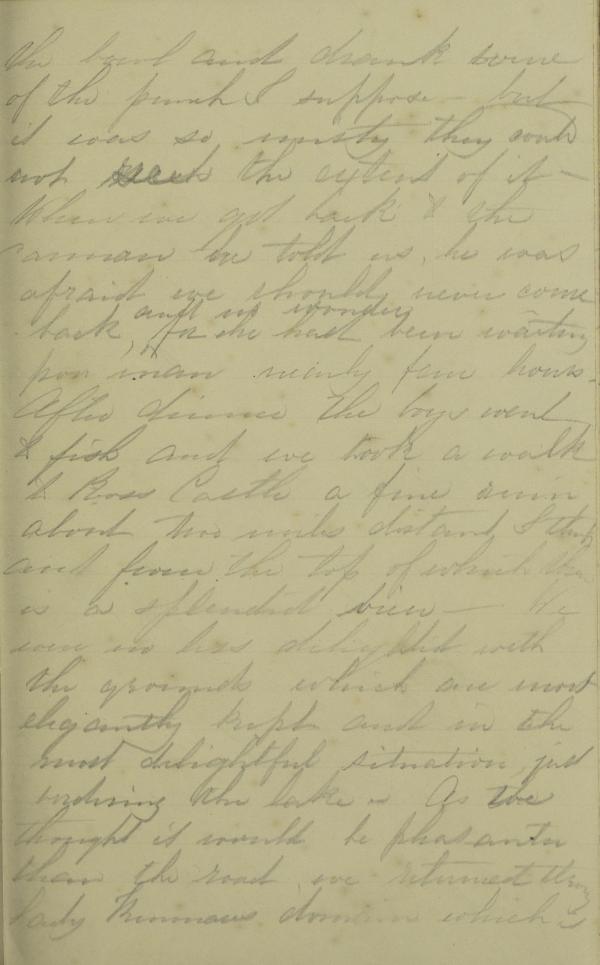 the bowl and drank some
of the punch I suppose — but
it was so misty they could
not the extent of it —
When we got back to the
carman he told us, he was
afraid we should never come
and no wonder
back, for he had been waiting
poor man nearly four hours.
After dinner the boys went
to fish and we took a walk
to Ross Castle a fine ruin
about two miles distant I think
and from the top of which there
is a splendid view — We
were no less delighted with
the grounds which are most
elegantly kept and in the
most delightful situation just
bordering the lake — As we
thought it would be pleasanter
than the road, we returned through
Lady domain which is